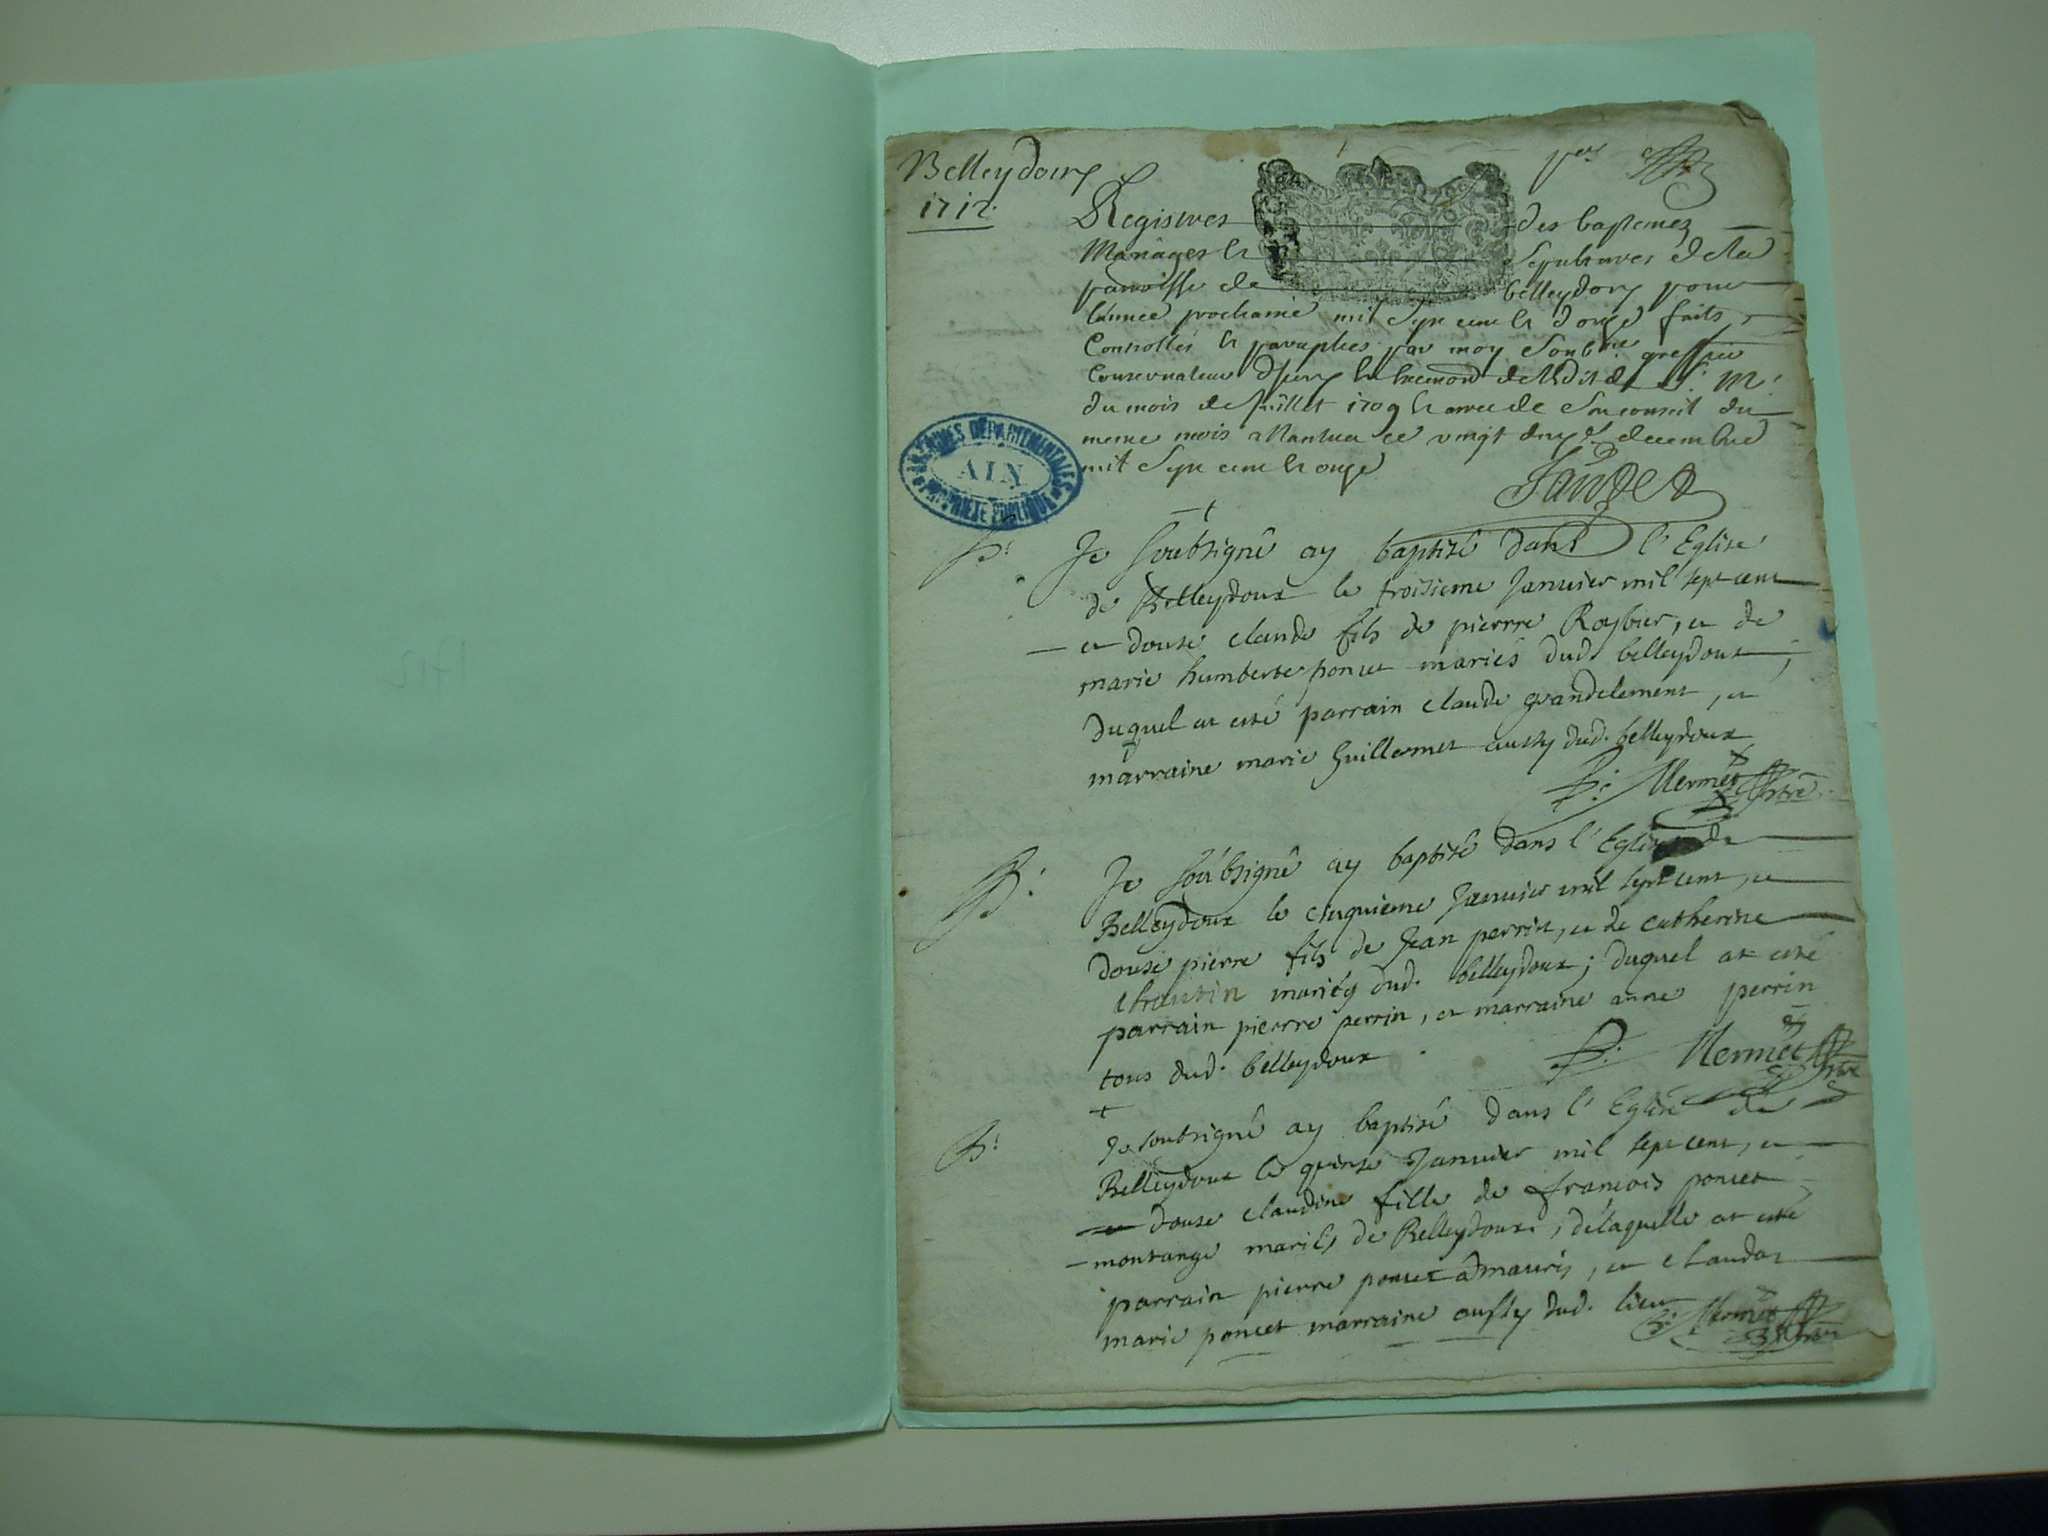 Belleydoux
1712
Registres des baptemes
Mariages et Sepultures de la
parroisse de belleydoux pour
lannee prochaine mil Sept cent et douze faits
Controllés et paraphes par moy greffier
Conservateur en de Ledit de S. M.
du mois de Juillet 1709 et arrest de Son conseil du
meme mois a Nantua ce vingt decembre
mil Sept cent et onze
ARCHIVES DÉPARTEMENTALES
AIN
PROPRIÉTÉ PUBLIQUE
B: Je soubsigné ay baptisé dans l'Eglise
de Belleydoux le troisieme Janvier mil sept cent
et douse claude fils de pierre Roybier, et de
marie humberte poncet mariés dud. belleydoux,
duquel at esté parrain claude grandclement, et
marraine marie Guillermet aussy dud. belleydoux
P: Mermet ptre
B: Je soubsigné ay baptisé dans l'Eglise de
Belleydoux le cinquieme Janvier mil sept cent, et
douse pierre fils de Jean perrin, et de catherine
chantin mariés dud. belleydoux; duquel at esté
parrain pierre perrin, et marraine anne perrin
tous dud. belleydoux
P: Mermet ptre
B: Je soubsigné ay baptisé dans l'Eglise de
Belleydoux le quinse Janvier mil sept cent, et
douse claudine fille de francois poncet
montange mariés de Belleydoux, delaquelle at esté
parrain pierre poncet à mauris, et claudaz
marie poncet marraine aussy dud. lieu
P: Mermet ptre
1712